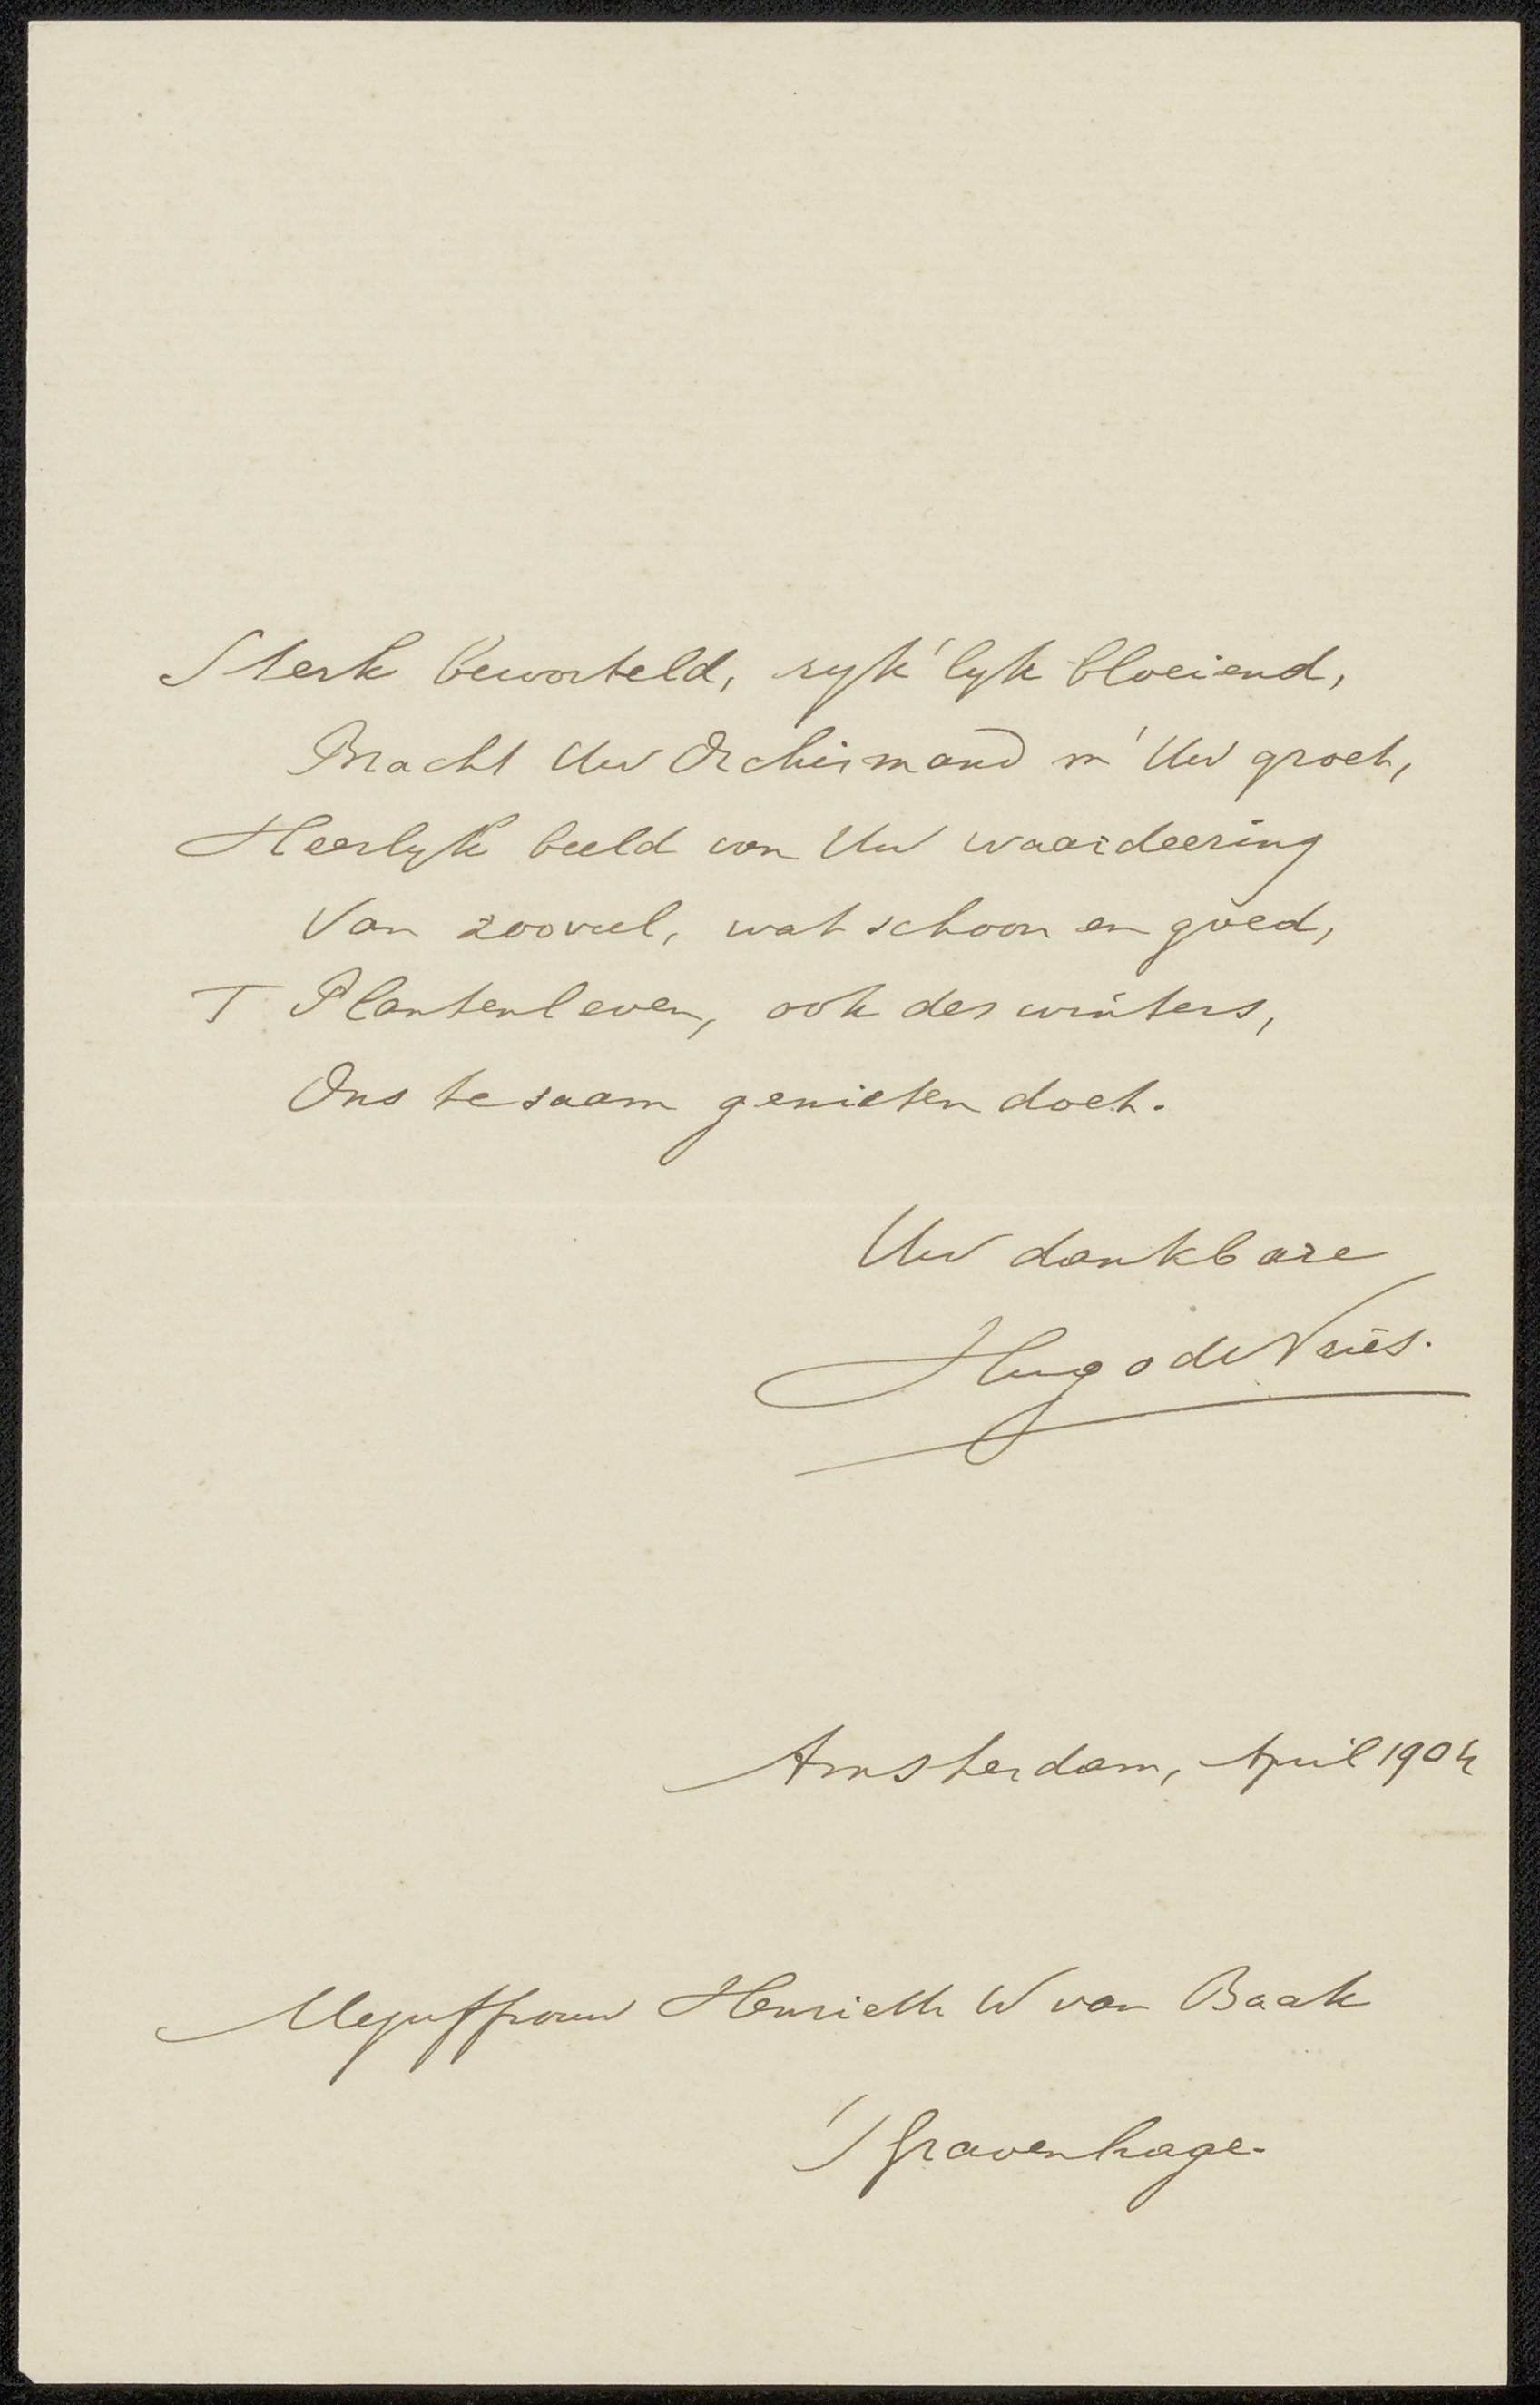 Sterk beworteld, ryk'lyk bloeiend,
Bracht Uw Orchismand m' Uw groet,
Heerlyk beeld van Uw waardeering
Van zooveel, wat schoon en goed,
T Plantenleven, ook des winters,
Ons te zaam genieten doet.
Uw dankbare
Hugo de Vries.
Amsterdam, April 1904
Mejuffrouw Henriette W van Baak
'S Gravenhage.